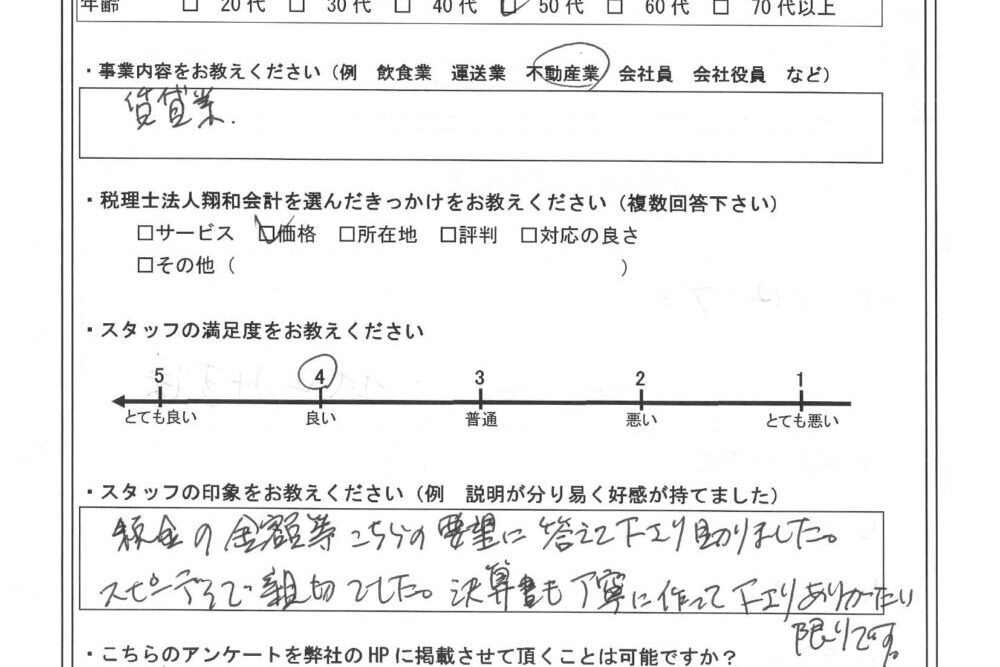 年齢 □ 20代 □ 30代 □ 40代 ☑ 50代 □ 60代 □ 70代以上
・事業内容をお教えください（例 飲食業 運送業 不動産業 会社員 会社役員 など）
賃貸業.
・税理士法人翔和会計を選んだきっかけをお教えください（複数回答下さい）
□サービス ☑価格 □所在地 □評判 □対応の良さ
□その他（ ）
・スタッフの満足度をお教えください
5 4 3 2 1
とても良い 良い 普通 悪い とても悪い
・スタッフの印象をお教えください（例 説明が分り易く好感が持てました）
税金の金額等こちらの要望に答えて下さり助かりました。
スピーディで親切でした。決算書も丁寧に作って下さりありがたい
限りです。
・こちらのアンケートを弊社のHPに掲載させて頂くことは可能ですか？